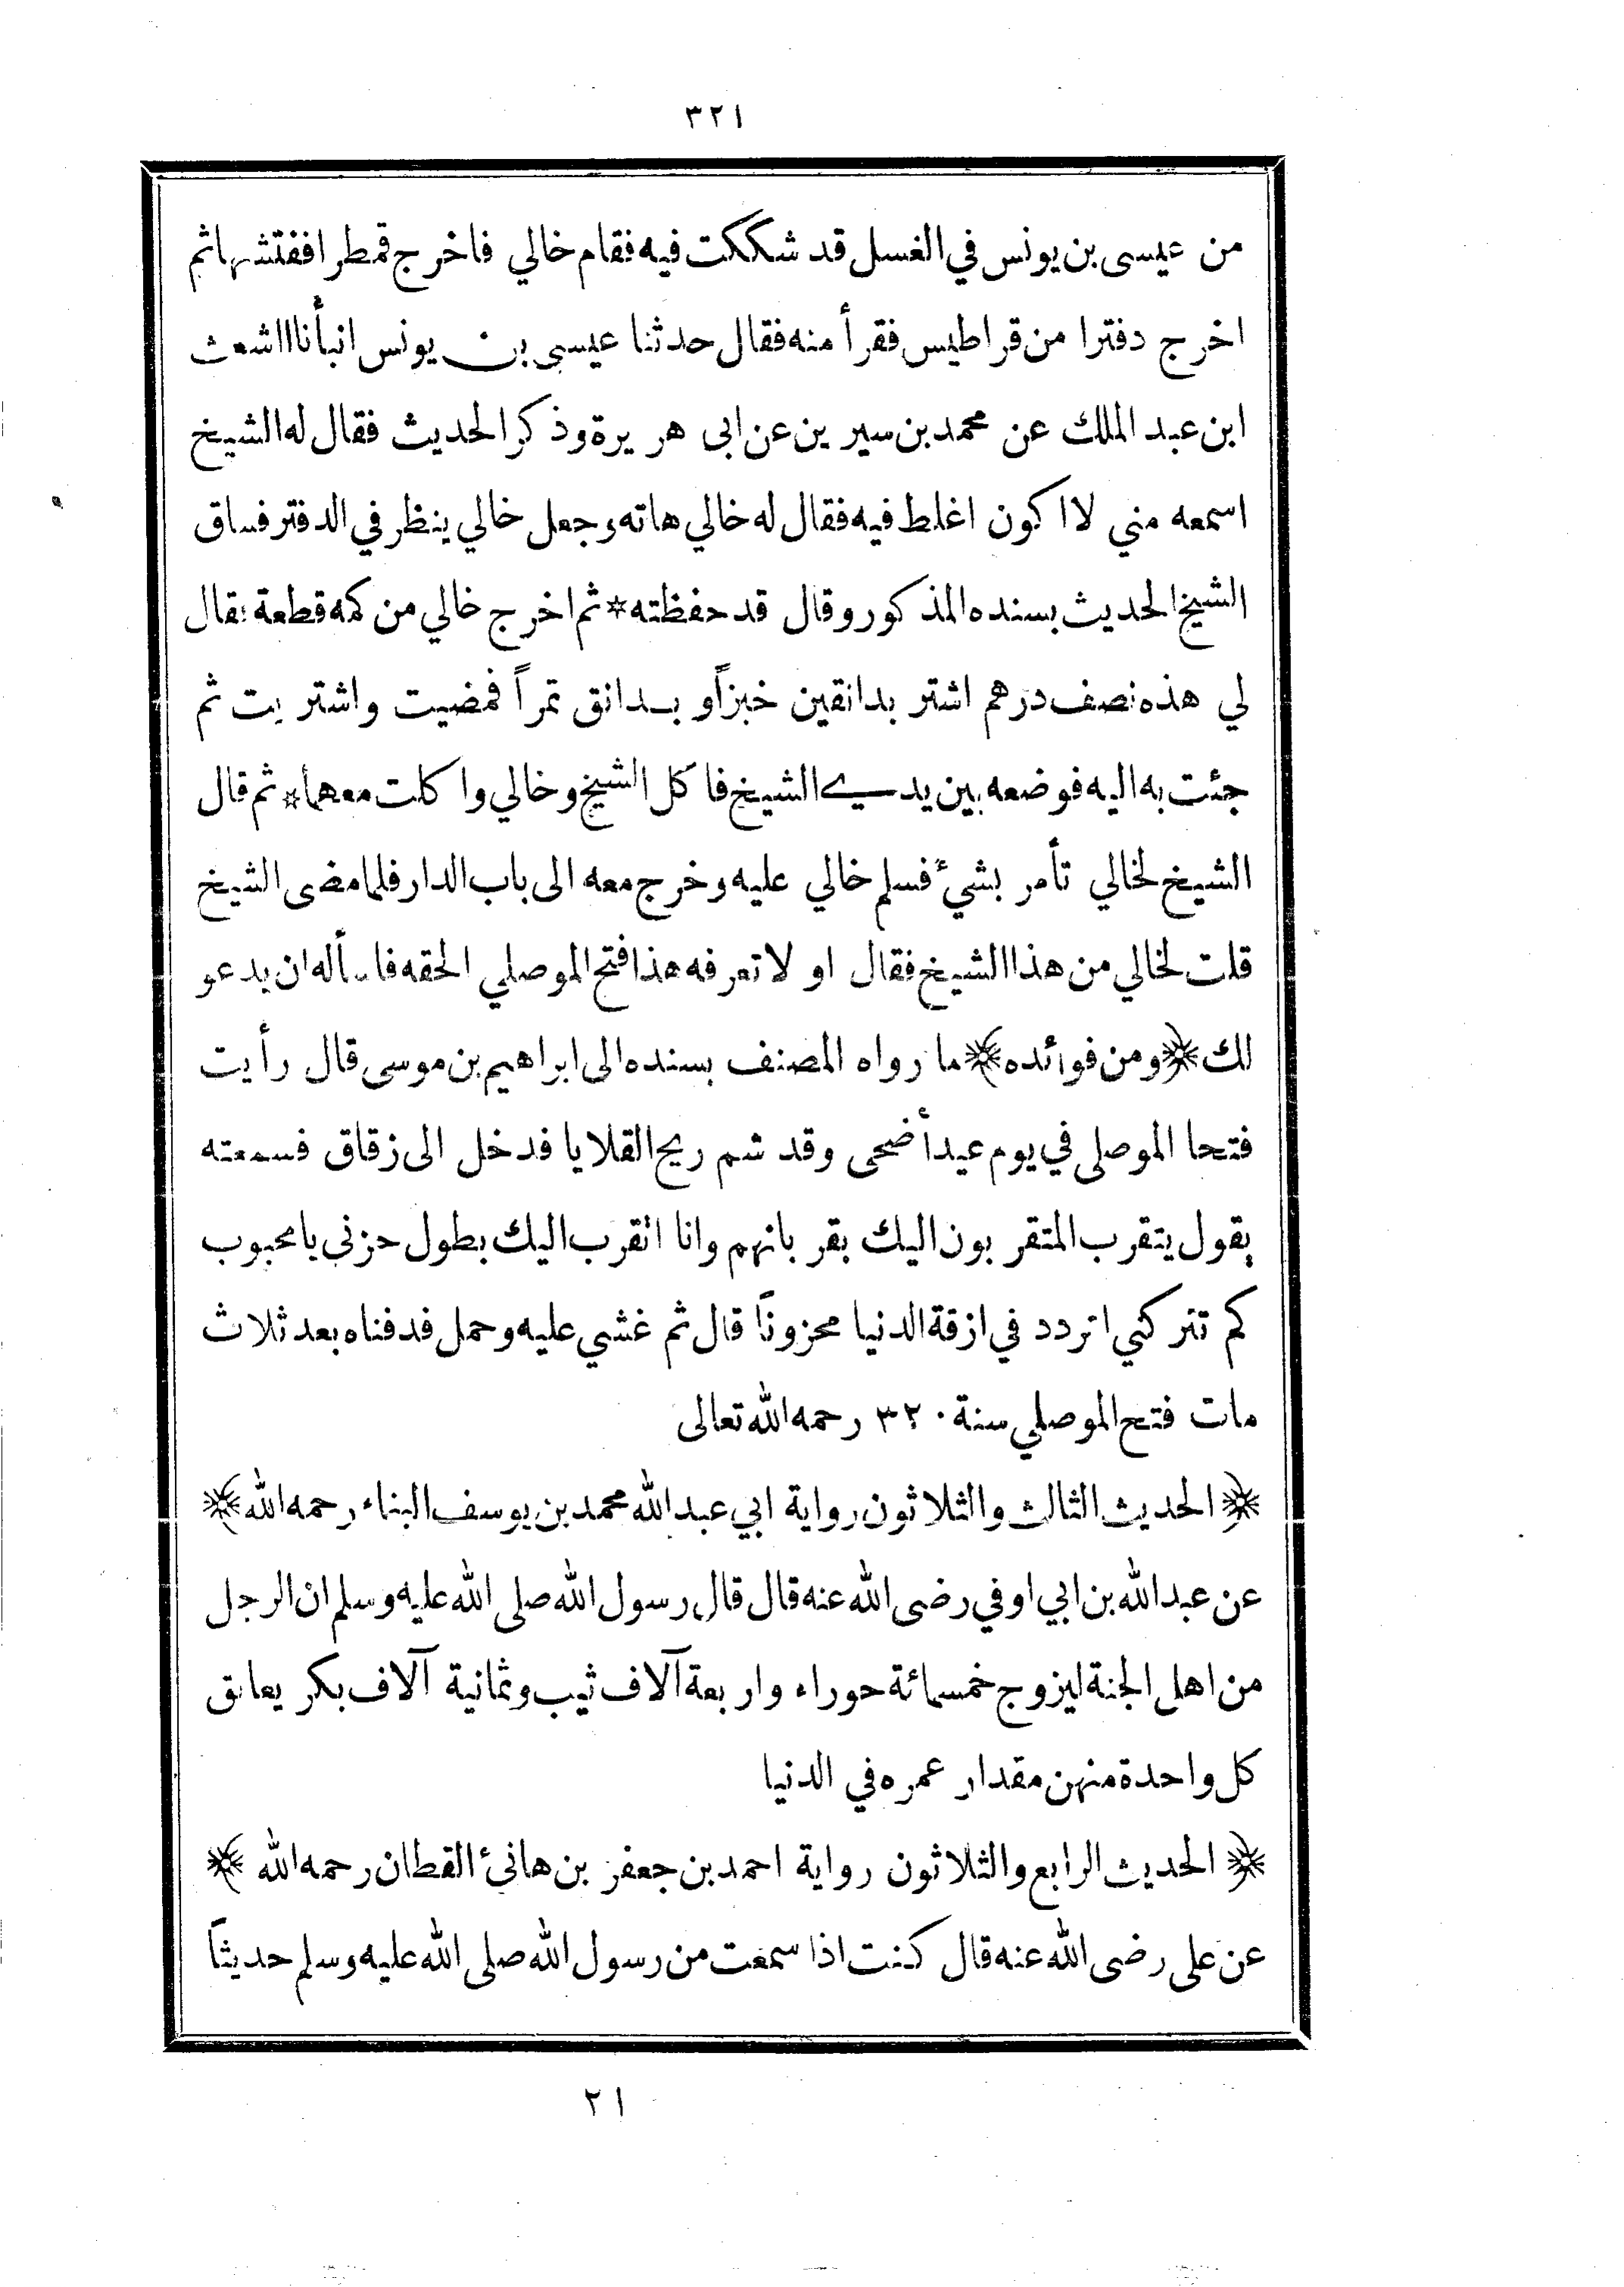 ٣٢١
من عيسى بن يونس في الغسل قد شككت فيه فقام خالي فاخرج قمطرا ففتشها ثم
اخرج دفترا من قراطيس فقرأ منه فقال حدثنا عيسى بن يونس انبأنا اشعث
ابن عبد الملك عن محمد بن سيرين عن ابى هريرة وذكر الحديث فقال له الشيخ
اسمعه مني لا اكون اغلط فيه فقال له خالي هاته وجعل خالي ينظر في الدفتر فساق
الشيخ الحديث بسنده المذكور وقال قد حفظته * ثم اخرج خالي من كمه قطعة فقال
لي هذه نصف درهم اشتر بدانقين خبزاً وبدانق تمراً فمضيت واشتريت ثم
جئت به اليه فوضعه بين يدي الشيخ فاكل الشيخ وخالي واكلت معهما * ثم قال
الشيخ لخالي تأمر بشيء فسلم خالي عليه وخرج معه الى باب الدار فلما مضى الشيخ
قلت لخالي من هذا الشيخ فقال او لا تعرفه هذا فتح الموصلي الحقه فاسأله ان يدعو
لك ﴿ومن فوائده﴾ ما رواه المصنف بسنده الى ابراهيم بن موسى قال رأيت
فتحا الموصلى في يوم عيد أضحى وقد شم ريح القلايا فدخل الى زقاق فسمعته
يقول يتقرب المتقربون اليك بقربانهم وانا اتقرب اليك بطول حزنى يا محبوب
كم تتركني اتردد في ازقة الدنيا محزوناً قال ثم غشي عليه وحمل فدفناه بعد ثلاث
مات فتح الموصلي سنة ٣٢٠ رحمه الله تعالى
﴿الحديث الثالث والثلاثون رواية ابي عبد الله محمد بن يوسف البناء رحمه الله﴾
عن عبد الله بن ابي اوفي رضى الله عنه قال قال رسول الله صلى الله عليه وسلم ان الرجل
من اهل الجنة ليزوج خمسمائة حوراء واربعة آلاف ثيب وثمانية آلاف بكر يعانق
كل واحدة منهن مقدار عمره في الدنيا
﴿الحديث الرابع والثلاثون رواية احمد بن جعفر بن هانئ القطان رحمه الله﴾
عن على رضى الله عنه قال كنت اذا سمعت من رسول الله صلى الله عليه وسلم حديثاً
٢١